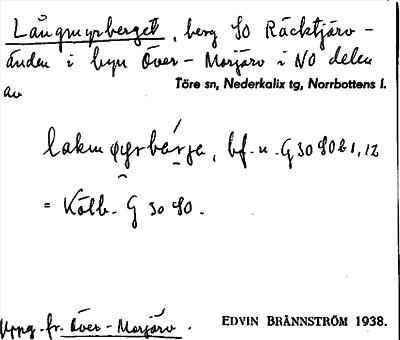 Långmyrberget, berg SO Räcktjärv -
änden i byn Över - Morjärv i NO delen
av Töre sn, Nederkalix tg, Norrbottens l.
bf. u. G 30 90 b 1, 12
= Kölb. G 30 90.
Uppg. fr. Över - Morjärv.
EDVIN BRÄNNSTRÖM 1938.